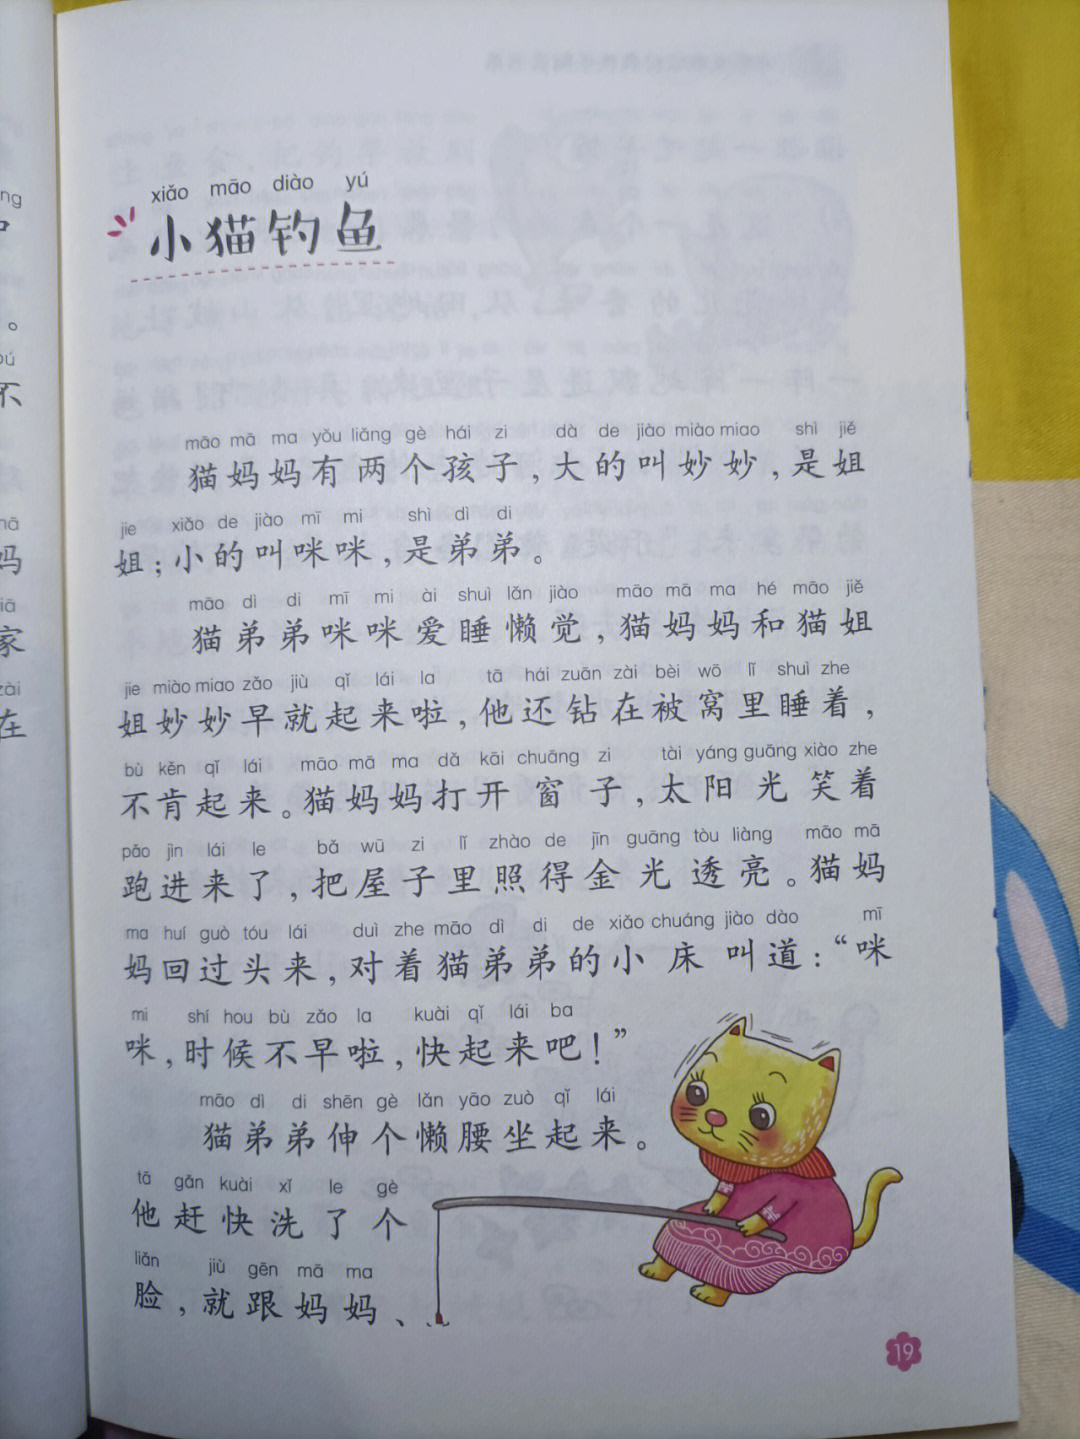 xiǎo māo diào yú
小猫钓鱼
māo mā ma yǒu liǎng gè hái zi dà de jiào miào miao shì jiě
猫妈妈有两个孩子，大的叫妙妙，是姐
jie xiǎo de jiào mī mi shì dì di
姐；小的叫咪咪，是弟弟。
māo dì di mī mi ài shuì lǎn jiào māo mā ma hé māo jiě
猫弟弟咪咪爱睡懒觉，猫妈妈和猫姐
jie miào miao zǎo jiù qǐ lái la tā hái zuān zài bèi wō lǐ shuì zhe
姐妙妙早就起来啦，他还钻在被窝里睡着，
bù kěn qǐ lái māo mā ma dǎ kāi chuāng zi tài yáng guāng xiào zhe
不肯起来。猫妈妈打开窗子，太阳光笑着
pǎo jìn lái le bǎ wū zi lǐ zhào de jīn guāng tòu liàng māo mā
跑进来了，把屋子里照得金光透亮。猫妈
ma huí guò tóu lái duì zhe māo dì di de xiǎo chuáng jiào dào mī
妈回过头来，对着猫弟弟的小床叫道：“咪
mi shí hou bù zǎo la kuài qǐ lái ba
咪，时候不早啦，快起来吧！”
māo dì di shēn gè lǎn yāo zuò qǐ lái
猫弟弟伸个懒腰坐起来。
tā gǎn kuài xǐ le gè
他赶快洗了个
liǎn jiù gēn mā ma
脸，就跟妈妈、
19